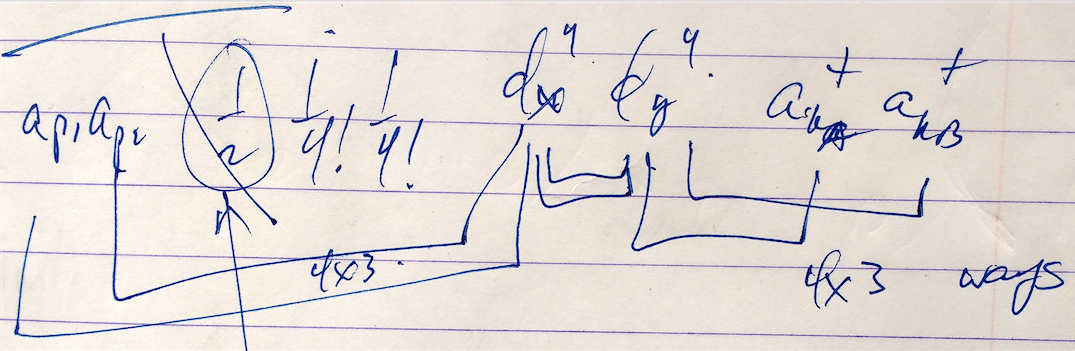 a_{p_1} a_{p_2} \frac{1}{2} \frac{1}{4!} \frac{1}{4!} \phi_x^4 \phi_y^4 a_{k_A}^+ a_{k_B}^+
4x3 4x3 ways